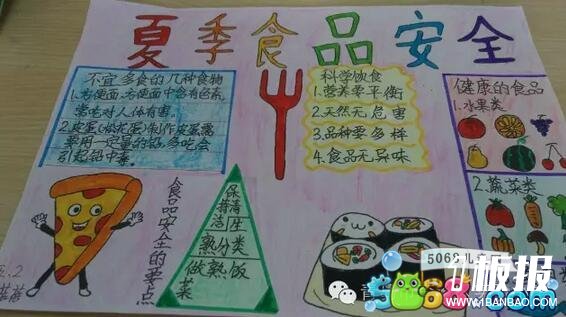 夏季食品安全
不宜多食的几种食物
1.方便面.方便面中含有色素,
常吃对人体有害.
2.皮蛋(松花蛋)制作皮蛋需
要用一定量的铅,多吃会
引起铅中毒.
科学饮食
1.营养要平衡
2.天然无危害
3.品种要多样
4.食品无异味
健康的食品
1.水果类
2.蔬菜类
食品安全的要点
保持清洁
生熟分类
做熟饭菜
5068儿
板报